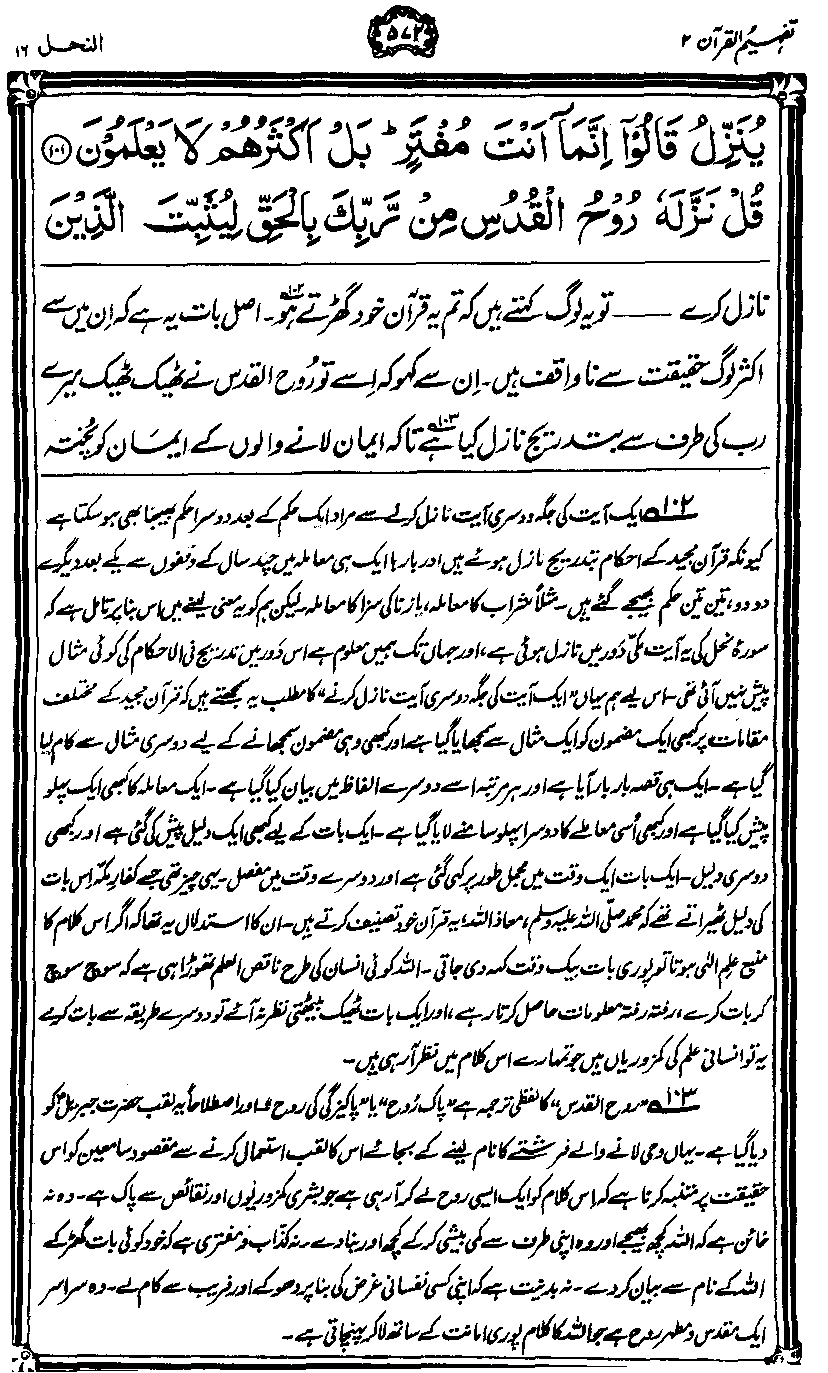 تفہیم القرآن ۲
۵۷۲
النحل ۱۶
يُنَزِّلُ قَالُوْٓا اِنَّمَآ اَنْتَ مُفْتَرٍ ؕ بَلْ اَكْثَرُهُمْ لَا يَعْلَمُوْنَ ﴿۱۰۱﴾
قُلْ نَزَّلَهٗ رُوْحُ الْقُدُسِ مِنْ رَّبِّكَ بِالْحَقِّ لِيُثَبِّتَ الَّذِيْنَ
نازل کرے ــــــ تو یہ لوگ کہتے ہیں کہ تم یہ قرآن خود گھڑتے ہو۱۰۲۔ اصل بات یہ ہے کہ اِن میں سے
اکثر لوگ حقیقت سے ناواقف ہیں۔ اِن سے کہو کہ اِسے تو رُوح القدس نے ٹھیک ٹھیک میرے
رب کی طرف سے بتدریج نازل کیا ہے۱۰۳ تاکہ ایمان لانے والوں کے ایمان کو پختہ
۱۰۲ ایک آیت کی جگہ دوسری آیت نازل کرنے سے مراد ایک حکم کے بعد دوسرا حکم بھیجنا بھی ہو سکتا ہے
کیونکہ قرآن مجید کے احکام بتدریج نازل ہوئے ہیں اور بارہا ایک ہی معاملہ میں چند سال کے وقفوں سے یکے بعد دیگرے
دو دو، تین تین حکم بھیجے گئے ہیں۔ مثلاً شراب کا معاملہ، یا زنا کی سزا کا معاملہ۔ لیکن ہم کو یہ معنی لینے میں اس بنا پر تامل ہے کہ
سورۂ نحل کی یہ آیت مکی دَور میں نازل ہوئی ہے، اور جہاں تک ہمیں معلوم ہے اس دَور میں تدریج فی الاحکام کی کوئی مثال
پیش نہیں آئی تھی۔ اس لیے ہم یہاں "ایک آیت کی جگہ دوسری آیت نازل کرنے" کا مطلب یہ سمجھتے ہیں کہ قرآن مجید کے مختلف
مقامات پر کبھی ایک مضمون کو ایک مثال سے سمجھایا گیا ہے اور کبھی وہی مضمون سمجھانے کے لیے دوسری مثال سے کام لیا
گیا ہے۔ ایک ہی قصہ بار بار آیا ہے اور ہر مرتبہ اسے دوسرے الفاظ میں بیان کیا گیا ہے۔ ایک معاملہ کا کبھی ایک پہلو
پیش کیا گیا ہے اور کبھی اُسی معاملے کا دوسرا پہلو سامنے لایا گیا ہے۔ ایک بات کے لیے کبھی ایک دلیل پیش کی گئی ہے اور کبھی
دوسری دلیل۔ ایک بات ایک وقت میں مجمل طور پر کہی گئی ہے اور دوسرے وقت میں مفصل۔ یہی چیز تھی جسے کفار مکہ اس بات
کی دلیل ٹھیراتے تھے کہ محمد صلّی اللہ علیہ وسلم، معاذ اللہ، یہ قرآن خود تصنیف کرتے ہیں۔ ان کا استدلال یہ تھا کہ اگر اس کلام کا
منبع علمِ الٰہی ہوتا تو پوری بات بیک وقت کہہ دی جاتی۔ اللہ کوئی انسان کی طرح ناقص العلم تھوڑا ہی ہے کہ سوچ سوچ
کر بات کرے، رفتہ رفتہ معلومات حاصل کرتا رہے، اور ایک بات ٹھیک بیٹھتی نظر نہ آئے تو دوسرے طریقہ سے بات کرے۔
یہ تو انسانی علم کی کمزوریاں ہیں جو تمہارے اس کلام میں نظر آرہی ہیں۔
۱۰۳ "روح القدس" کا لفظی ترجمہ ہے "پاک رُوح" یا "پاکیزگی کی روح"۔ اور اصطلاحاً یہ لقب حضرت جبریلؑ کو
دیا گیا ہے۔ یہاں وحی لانے والے فرشتے کا نام لینے کے بجائے اس کا لقب استعمال کرنے سے مقصود سامعین کو اس
حقیقت پر متنبہ کرنا ہے کہ اس کلام کو ایک ایسی روح لے کر آرہی ہے جو بشری کمزوریوں اور نقائص سے پاک ہے۔ وہ نہ
خائن ہے کہ اللہ کچھ بھیجے اور وہ اپنی طرف سے کمی بیشی کر کے کچھ اور بنا دے۔ نہ کذّاب و مفتری ہے کہ خود کوئی بات گھڑ کے
اللہ کے نام سے بیان کر دے۔ نہ بدنیت ہے کہ اپنی کسی نفسانی غرض کی بنا پر دھوکے اور فریب سے کام لے۔ وہ سراسر
ایک مقدس و مطہر روح ہے جو اللہ کا کلام پوری امانت کے ساتھ لا کر پہنچاتی ہے۔